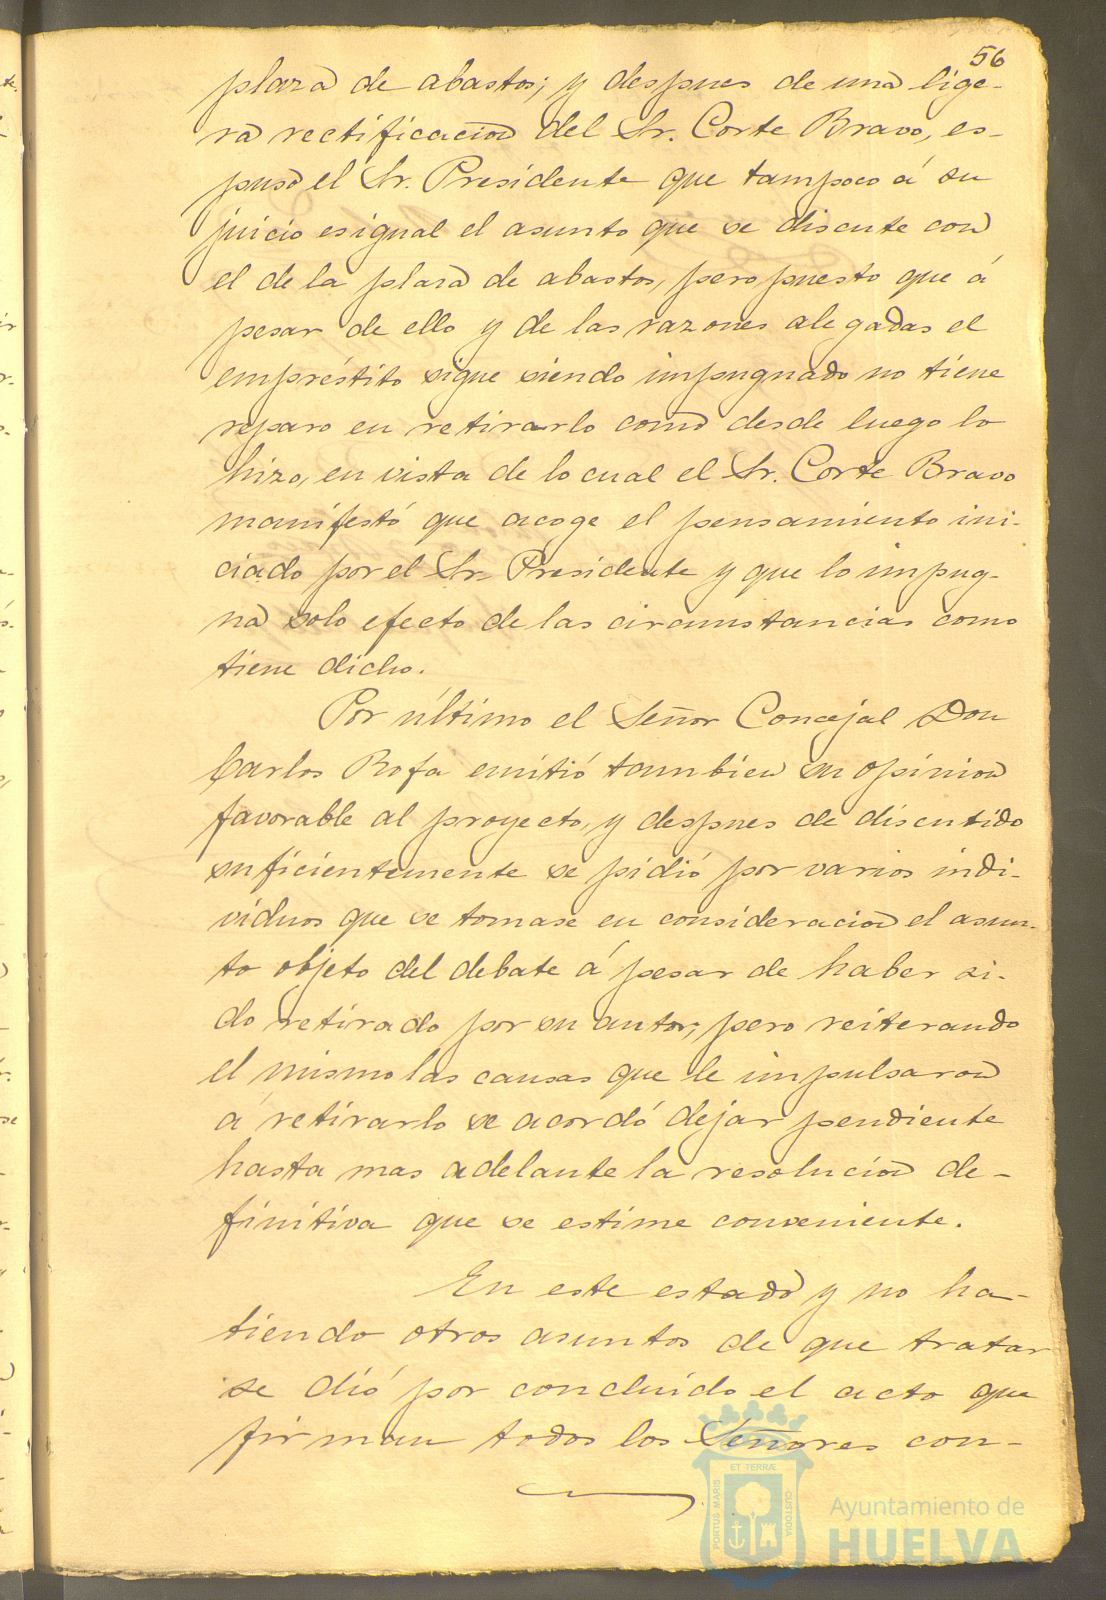 56
plaza de abastos; y despues de una lige-
ra rectificacion del Sr. Corte Bravo, es-
puso el Sr. Presidente que tampoco á su
juicio es igual el asunto que se discute con
el de la plaza de abastos, pero puesto que á
pesar de ello y de las razones alegadas el
empréstito sigue siendo impugnado no tiene
reparo en retirarlo como desde luego lo
hizo, en vista de lo cual el Sr. Corte Bravo
manifestó que acoge el pensamiento ini-
ciado por el Sr. Presidente y que lo impug-
na solo efecto de las circunstancias como
tiene dicho.
Por último el Señor Concejal Don
Carlos Rofa emitió tambien su opinion
favorable al proyecto, y despues de discutido
suficientemente se pidió por varios indi-
viduos que se tomase en consideracion el asun-
to objeto del debate á pesar de haber si-
do retirado por su autor; pero reiterando
el mismo las causas que le impulsaron
á retirarlo se acordó dejar pendiente
hasta mas adelante la resolucion de-
finitiva que se estime conveniente.
En este estado y no ha-
biendo otros asuntos de que tratar
se dió por concluido el acto que
firman todos los Señores con-
ET TERRÆ
PORTUS MARIS
CUSTODIA
Ayuntamiento de
HUELVA